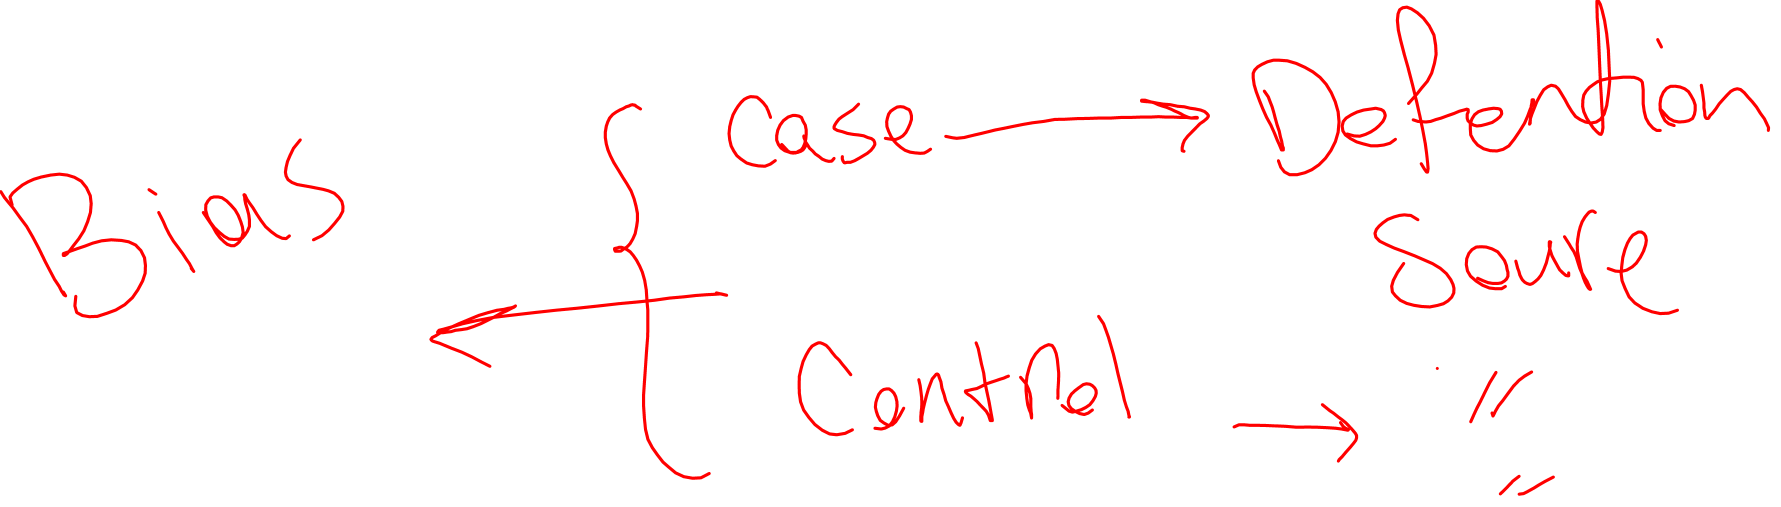 Bias { Case → Defention
Source
← Control → "
"